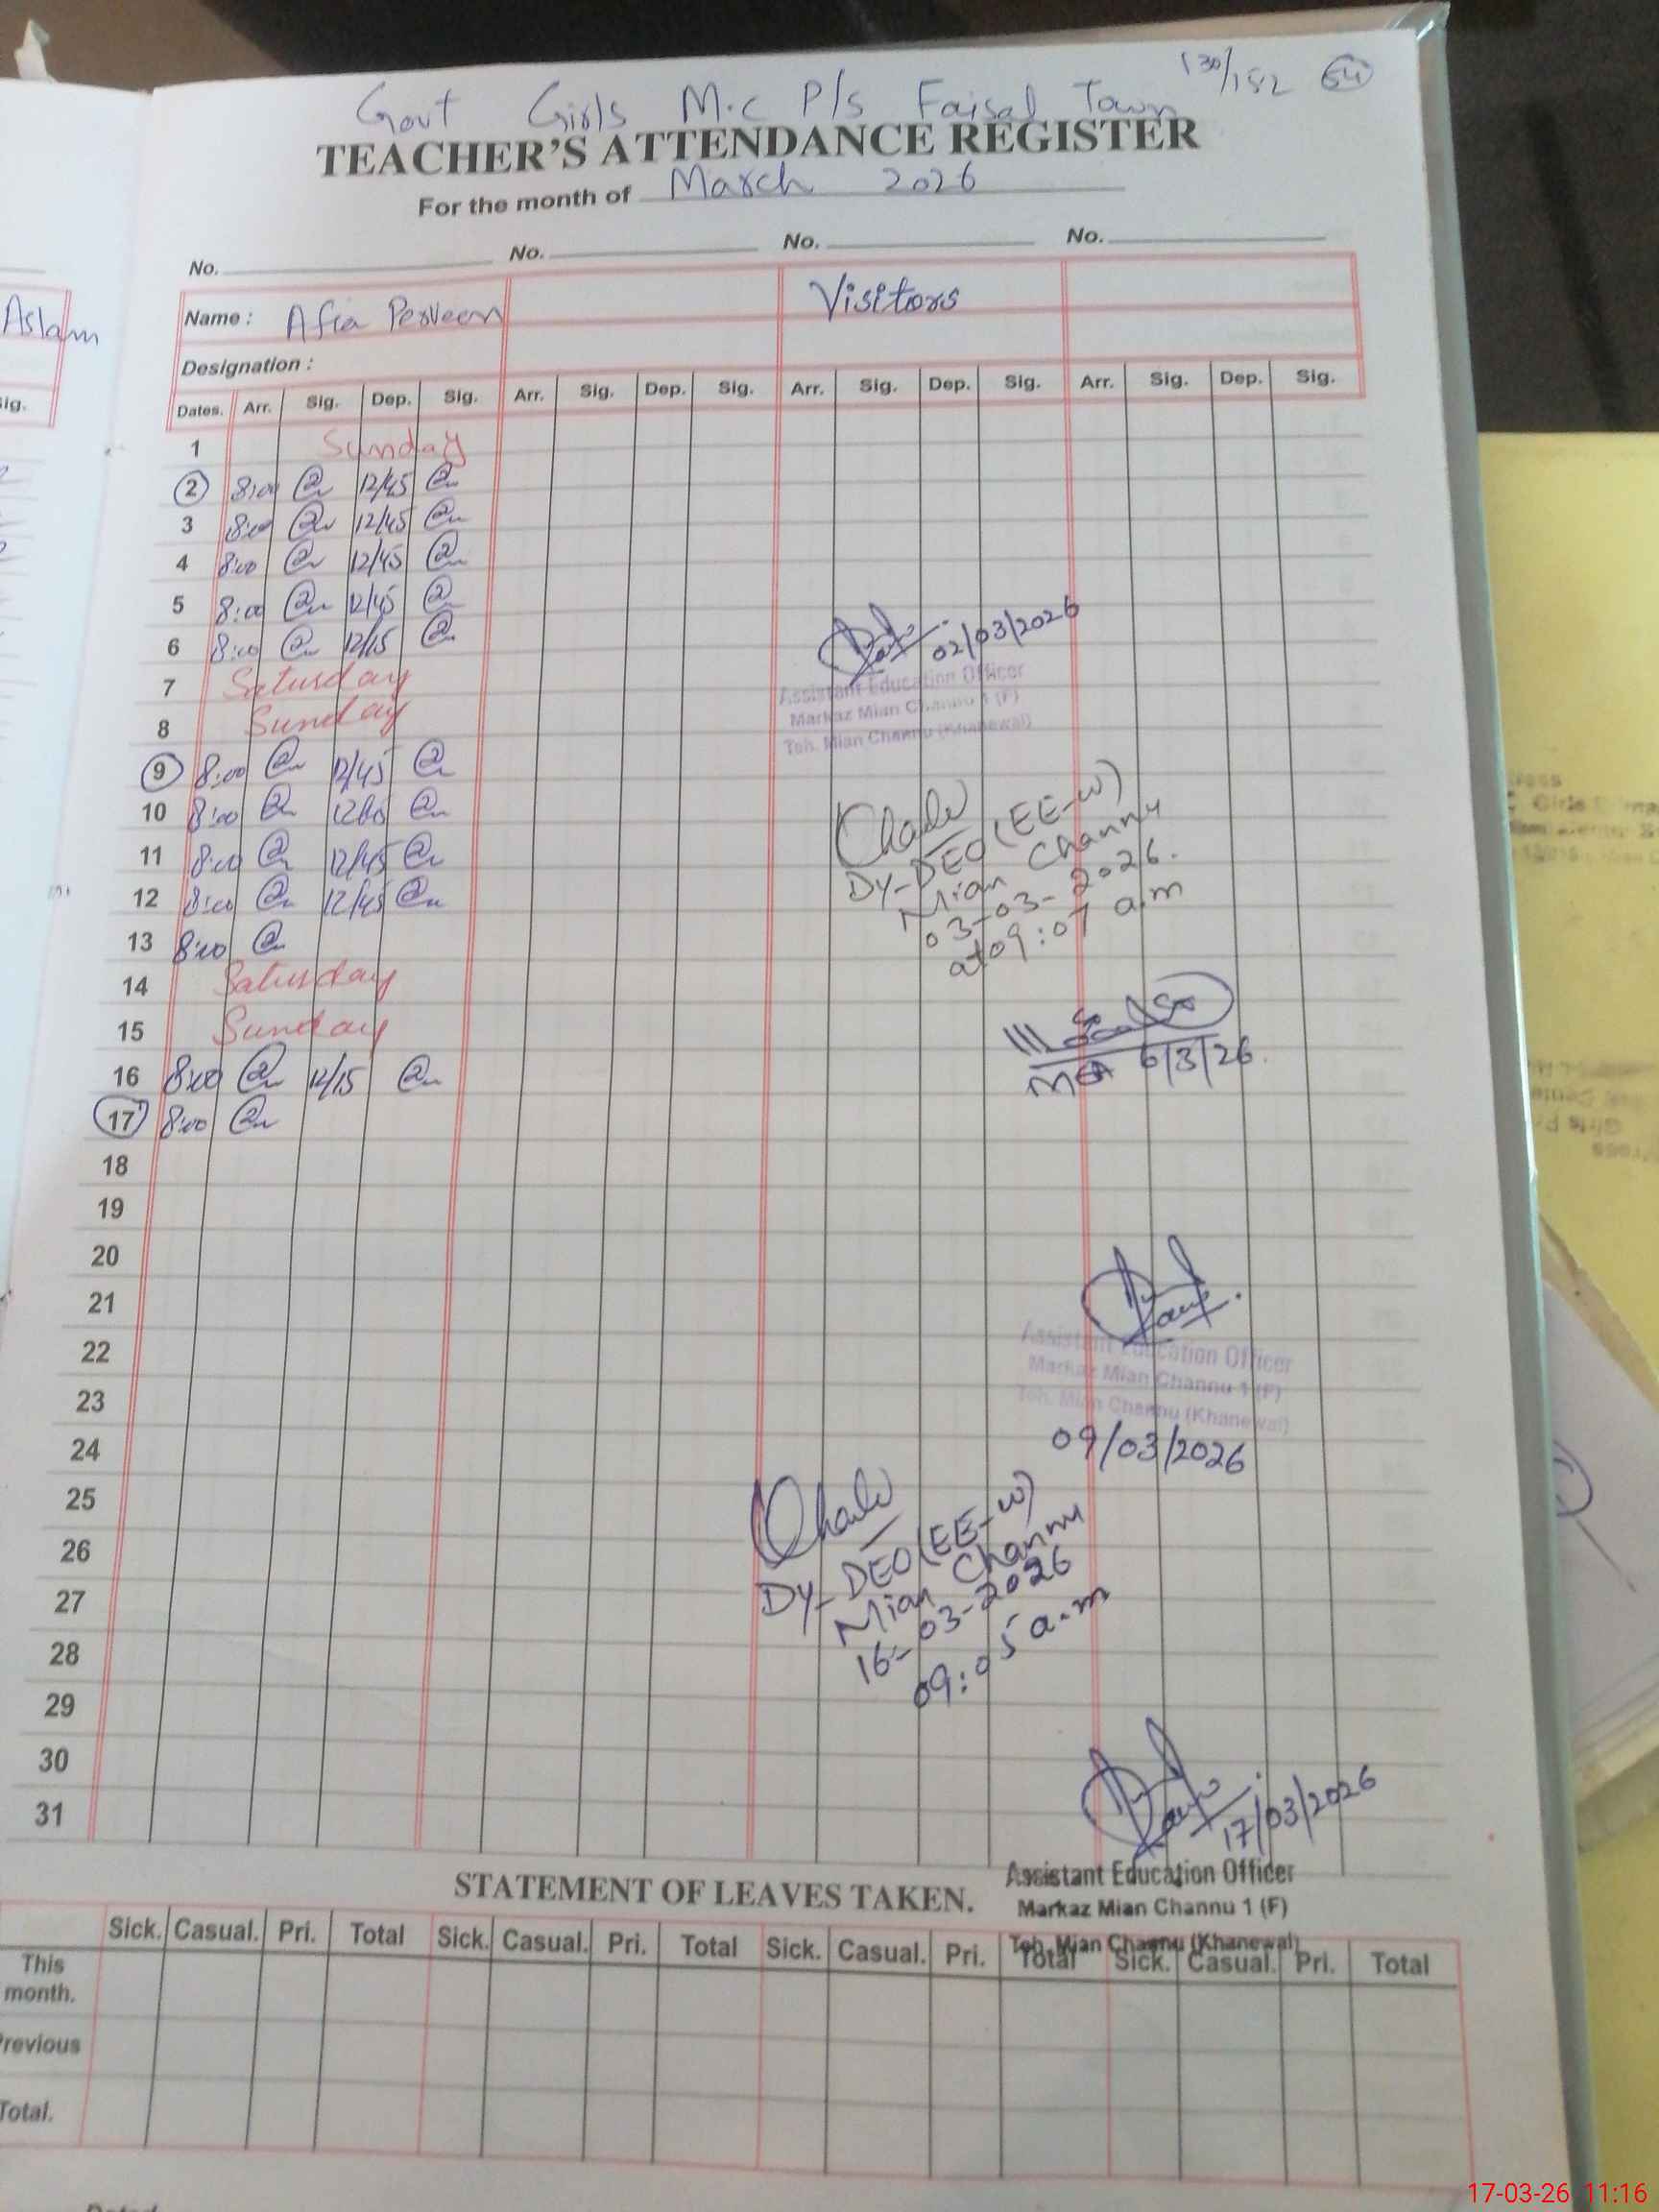 130/152 54
Govt Girls M.C P/s Faisal Town
TEACHER'S ATTENDANCE REGISTER
For the month of March 2026
No. No. No. No.
Name : Afia Perveen Visitors
Aslam
Designation :
Dates. Arr. Sig. Dep. Sig. Arr. Sig. Dep. Sig. Arr. Sig. Dep. Sig. Arr. Sig. Dep. Sig.
ig.
1 Sunday
2 8:00 12/45
3 8:00 12/45
4 8:00 12/45
5 8:00 12/45
6 8:00 12/15
02/03/2026
7 Saturday
Assistant Education Officer
Markaz Mian Channu 1 (F)
Teh. Mian Channu (Khanewal)
8 Sunday
9 8:00 12/45
10 8:00
11 8:00 12/45
12 8:00 12/45
Dy-DEO (EE-W)
Mian Channu
03-03-2026.
at 09:07 a.m
13 8:00
14 Saturday
15 Sunday
MEA 6/3/26.
16 8:00 12/15
17 8:00
18
19
20
21
22
Assistant Education Officer
Markaz Mian Channu 1 (F)
Teh. Mian Channu (Khanewal)
23
24
09/03/2026
25
26
Dy-DEO (EE-W)
Mian Channu
16-03-2026
09:05 a.m
27
28
29
30
31
17/03/2026
Assistant Education Officer
Markaz Mian Channu 1 (F)
Teh. Mian Channu (Khanewal)
STATEMENT OF LEAVES TAKEN.
Sick. Casual. Pri. Total Sick. Casual. Pri. Total Sick. Casual. Pri. Total Sick. Casual. Pri. Total
This
month.
Previous
Total.
17-03-26 11:16